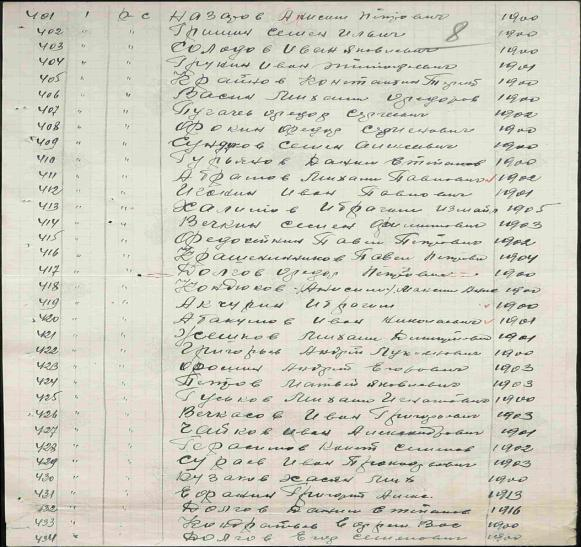 401 " р с Назаров Анисим Петрович 1900
8
402 " " Гришин Семен Ильич 1900
403 " " Солодов Иван Яковлевич 1900
404 " " Грукин Иван Тимофеевич 1901
405 " " Крайнов Константин 1900
406 " " Васин Михаил Федоров 1900
407 " " Пугачев Федор Сергеевич 1902
408 " " Фокин Федор Сергеевич 1900
409 " " Сундров Семен Алексеевич 1900
410 " " Гурьянов Данил Степанов 1900
411 " " Абрамов Михаил Павлович 1902
412 " " Игокин Иван Павлович 1901
413 " " Халитов Ибрагим Измайл 1905
414 " " Вечкин Семен Филиппович 1903
415 " " Федосейкин Павел Петрович 1902
416 " " Крашенинников Павел Петрович 1904
417 " " Долгов Федор Петрович 1900
418 " " Кондюков (Анисим) Максим 1900
419 " " Акчурин Ибрагим 1900
420 " " Абакумов Иван Николаевич 1901
421 " " Жешнов Михаил Дмитриевич 1901
422 " " Григорьев Андрей Лукьянович 1900
423 " " Фролин Андрей Егорович 1903
424 " " Петров Матвей Яковлевич 1903
425 " " Гуськов Михаил Игнатьевич 1900
426 " " Вечкасов Иван Григорьевич 1903
427 " " Чайков Иван Александрович 1901
428 " " Герасимов Конст Семенов 1902
429 " " Сураев Иван Прокофьевич 1903
430 " " Бузаков Хасян 1900
431 " " Ефракин Григорий Алекс. 1913
432 " " Долгов Данил Степанов 1916
433 " " Кондратьев Ефрем Вас 1900
434 " " Долгов Егор Семенович 1900